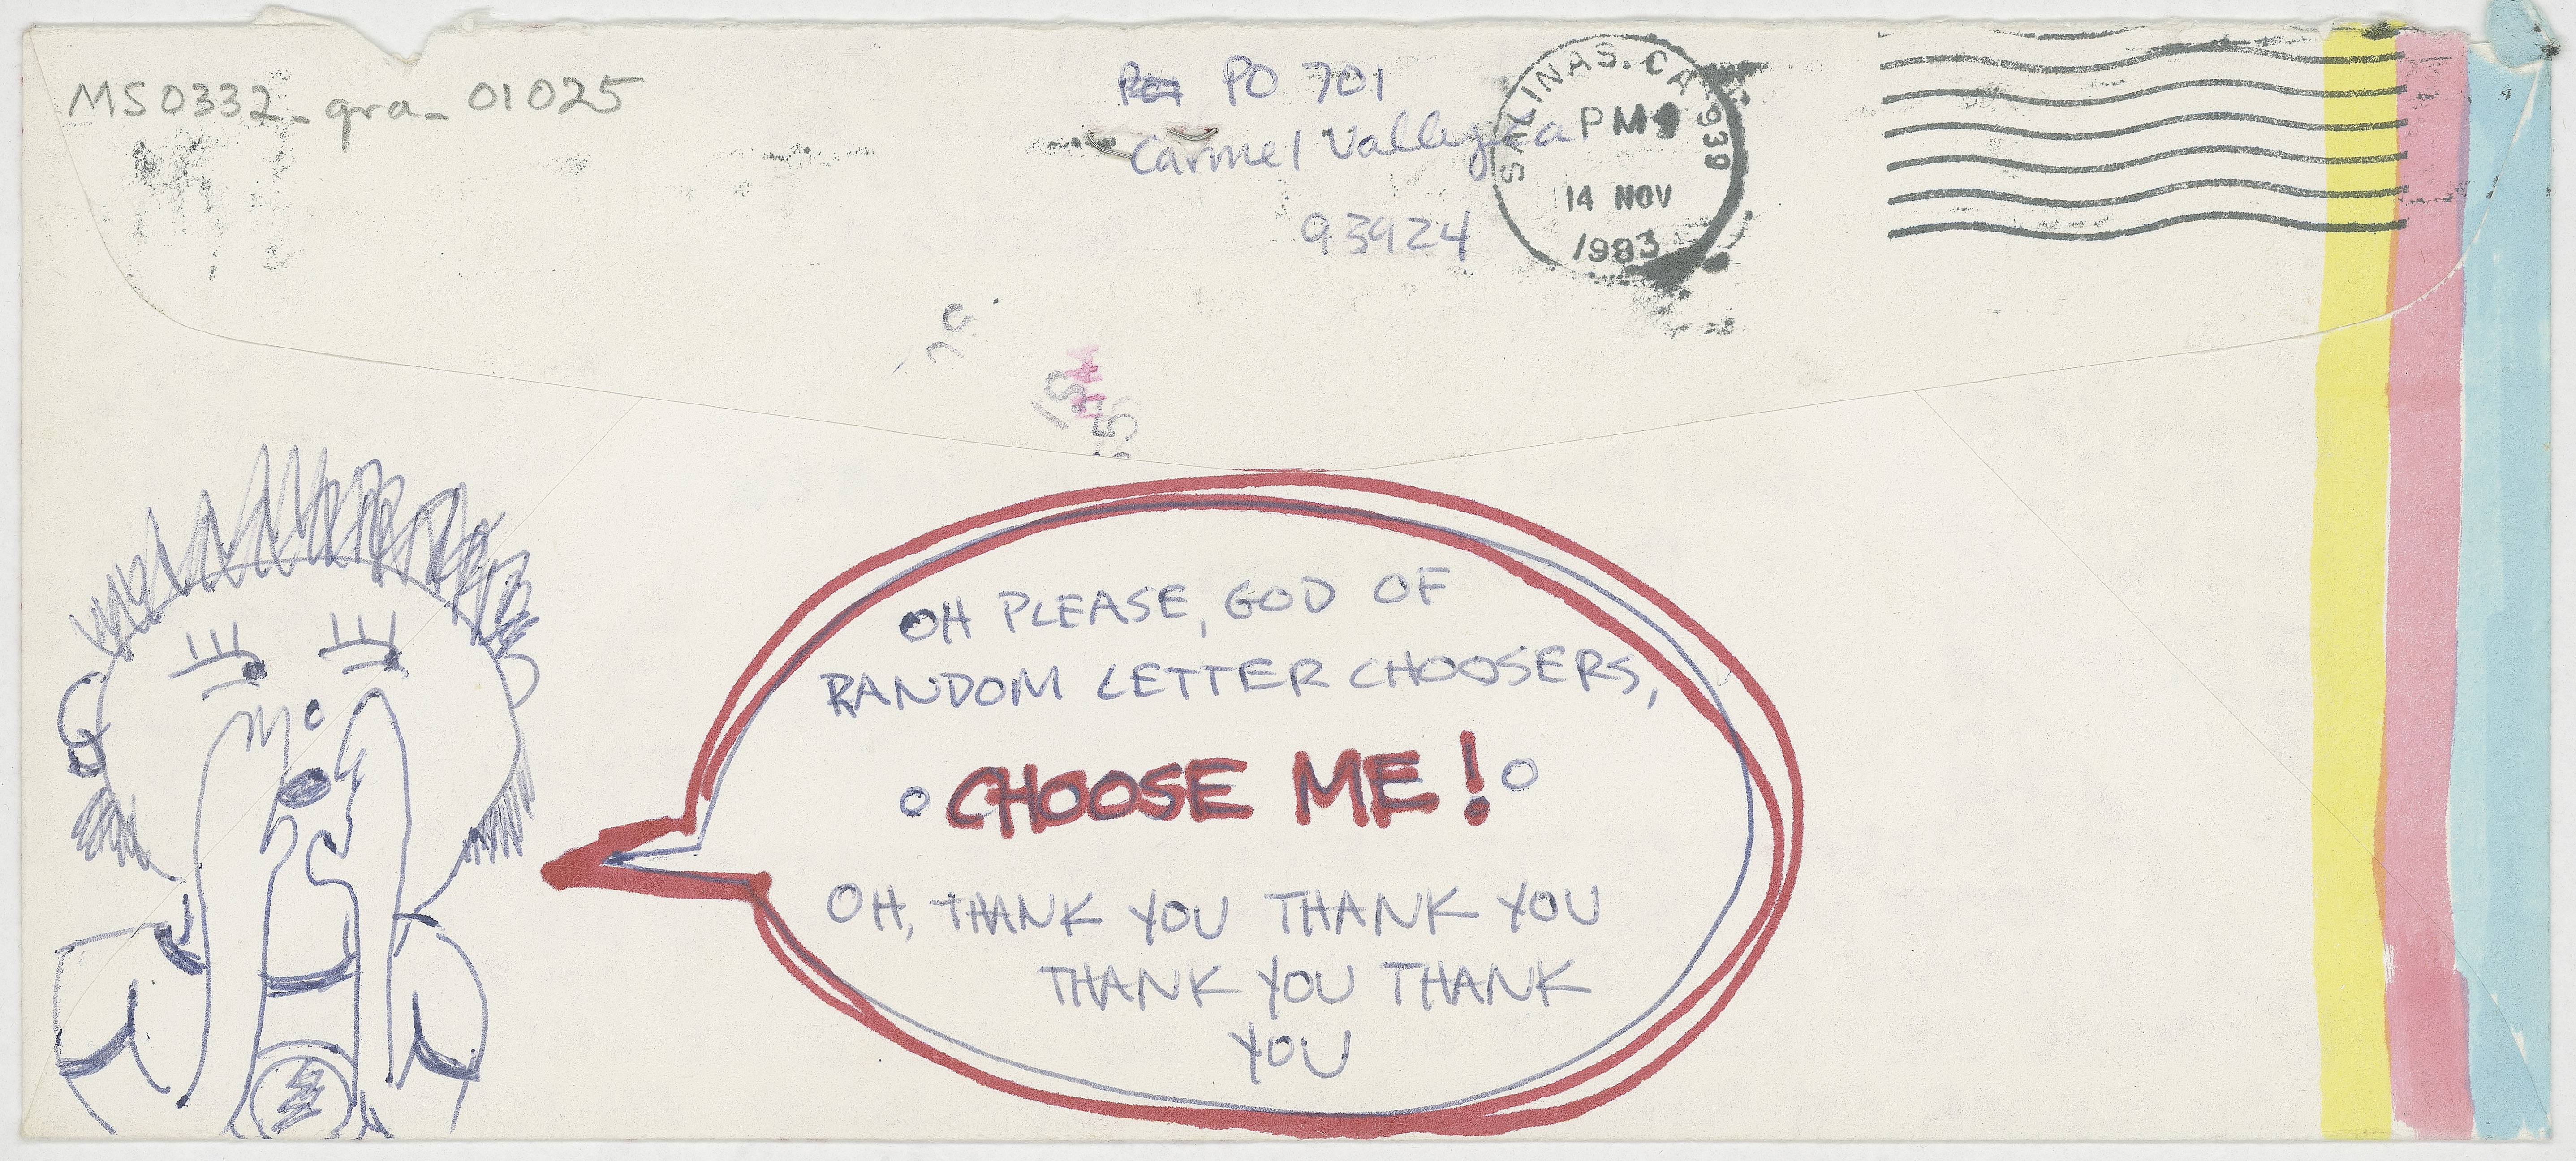 MS0332_gra_01025
PO 701
Carmel Valley Ca
93924
SALINAS, CA 939
PM
14 NOV
1983
OH PLEASE, GOD OF
RANDOM LETTER CHOOSERS,
CHOOSE ME!
OH, THANK YOU THANK YOU
THANK YOU THANK
YOU